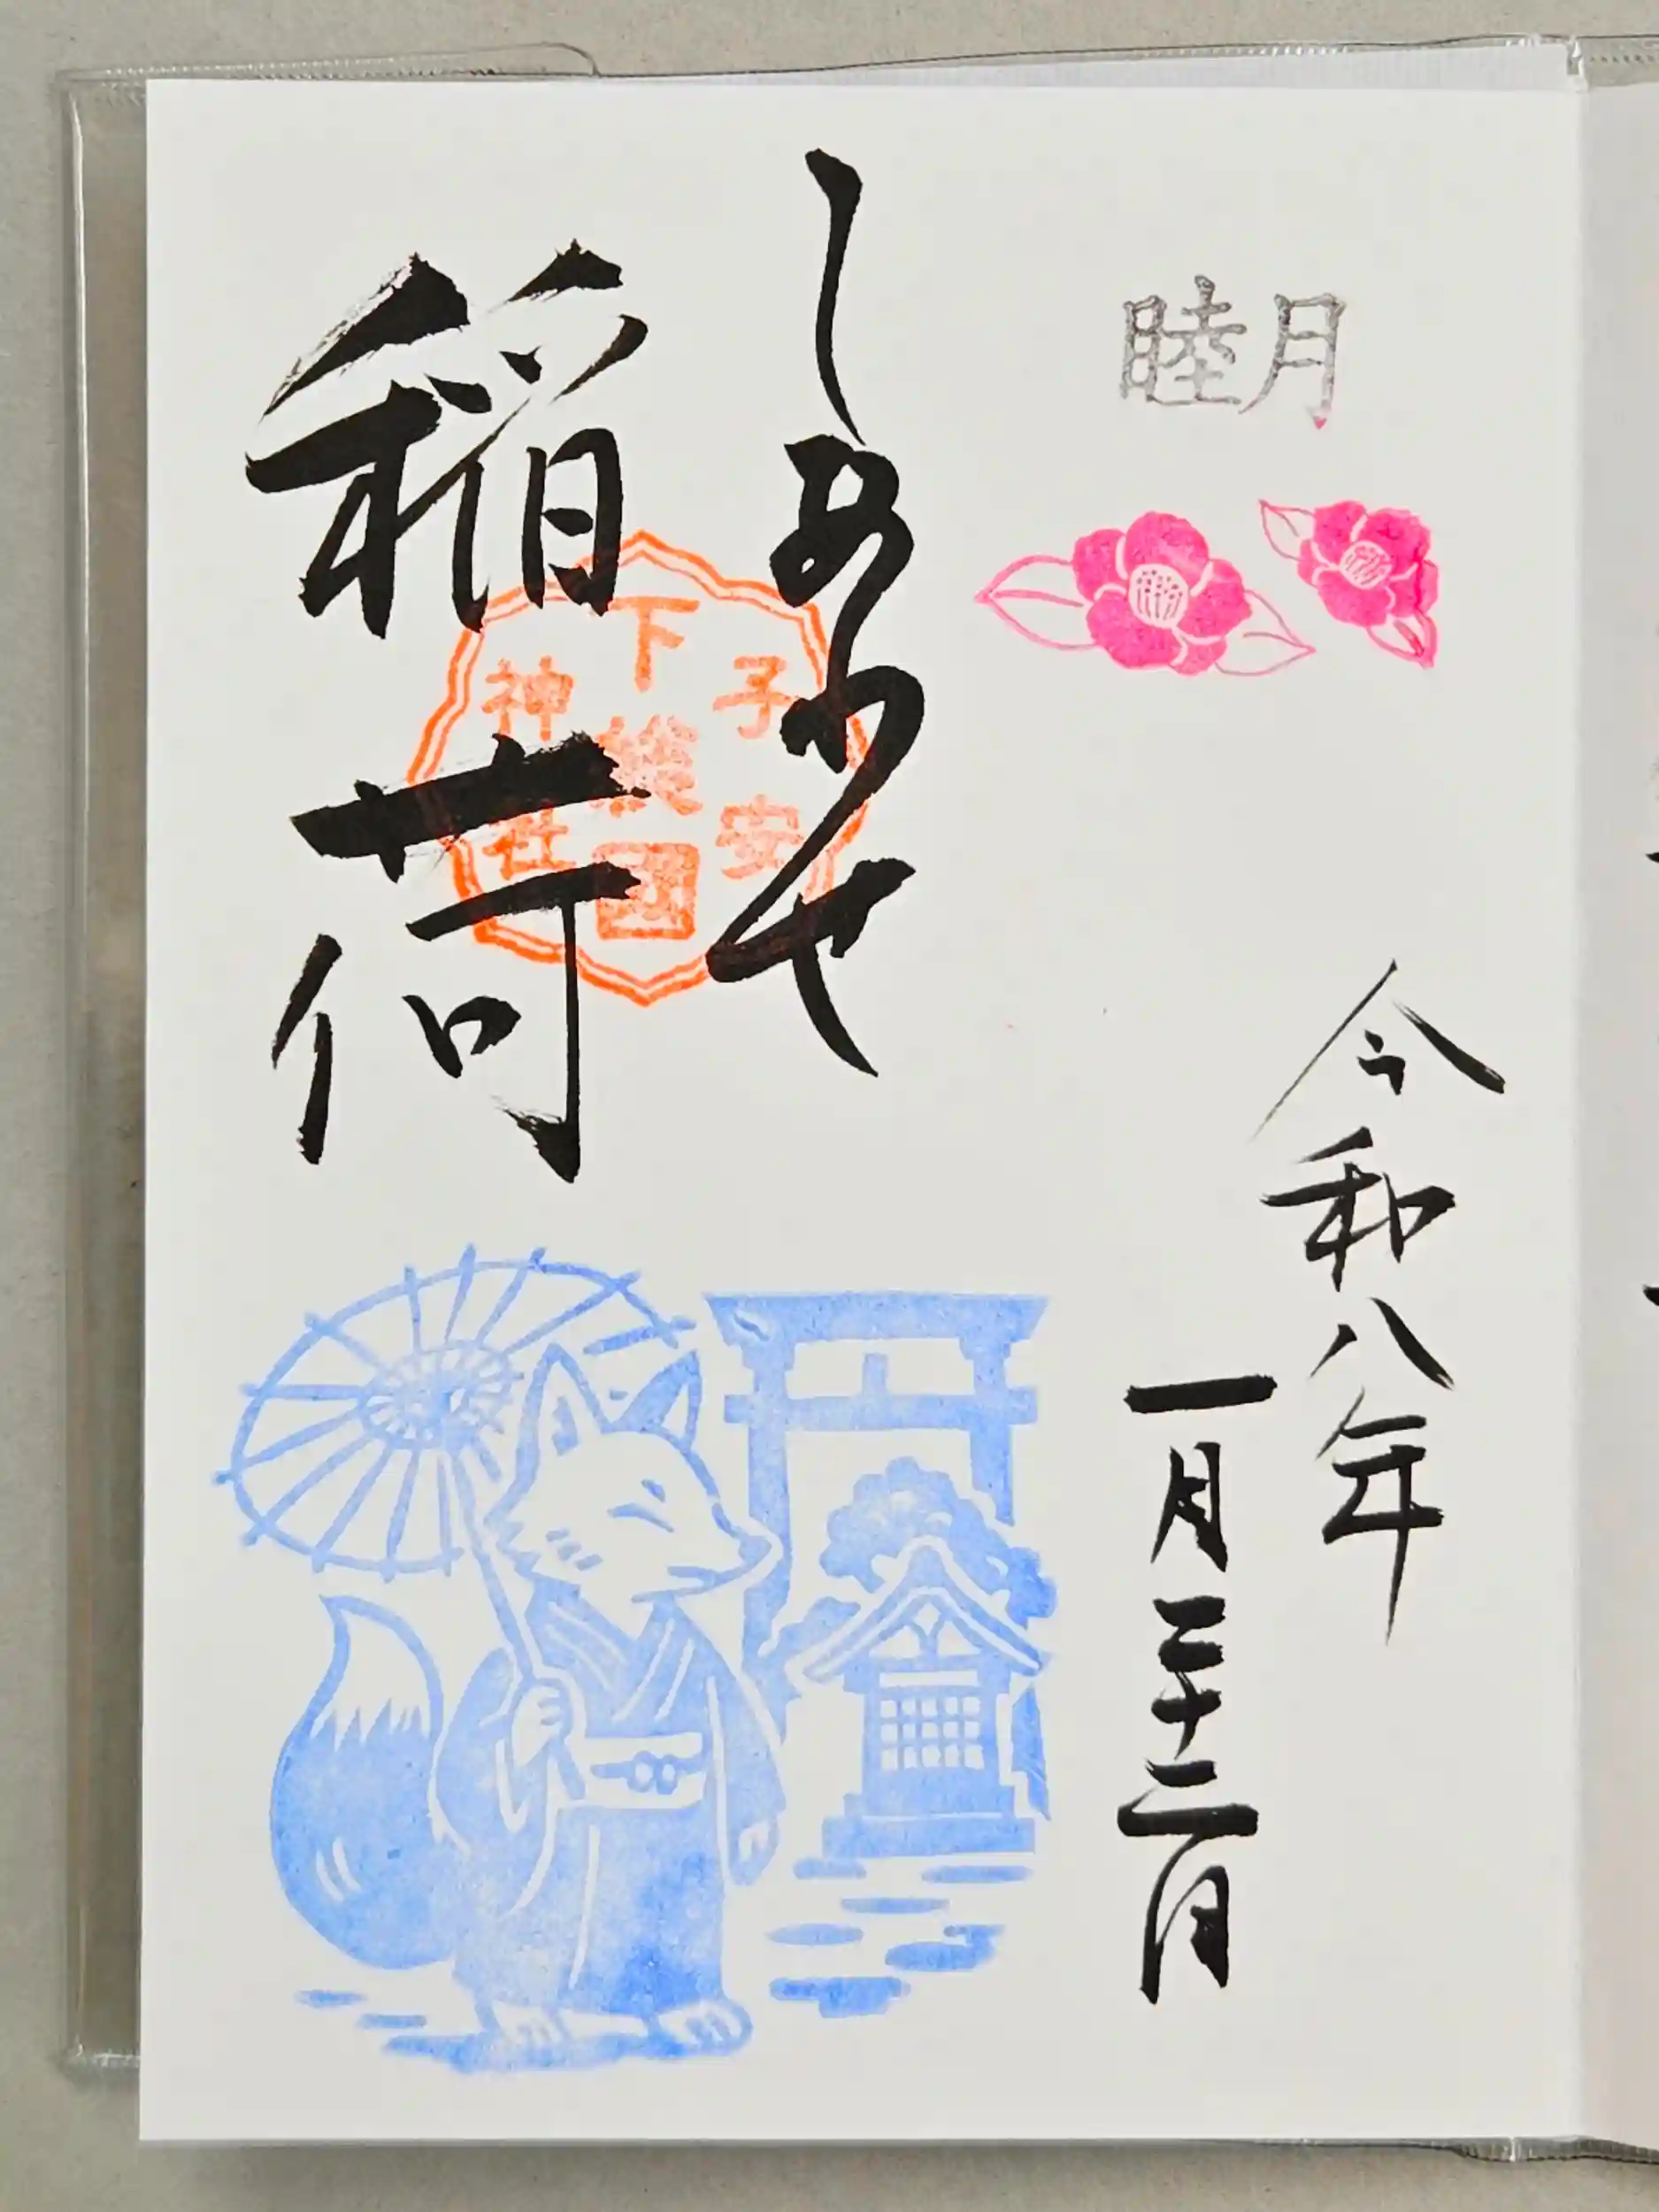 睦月
令和八年
一月二十二日
しあわせ
稲荷
子安
下總國
神社